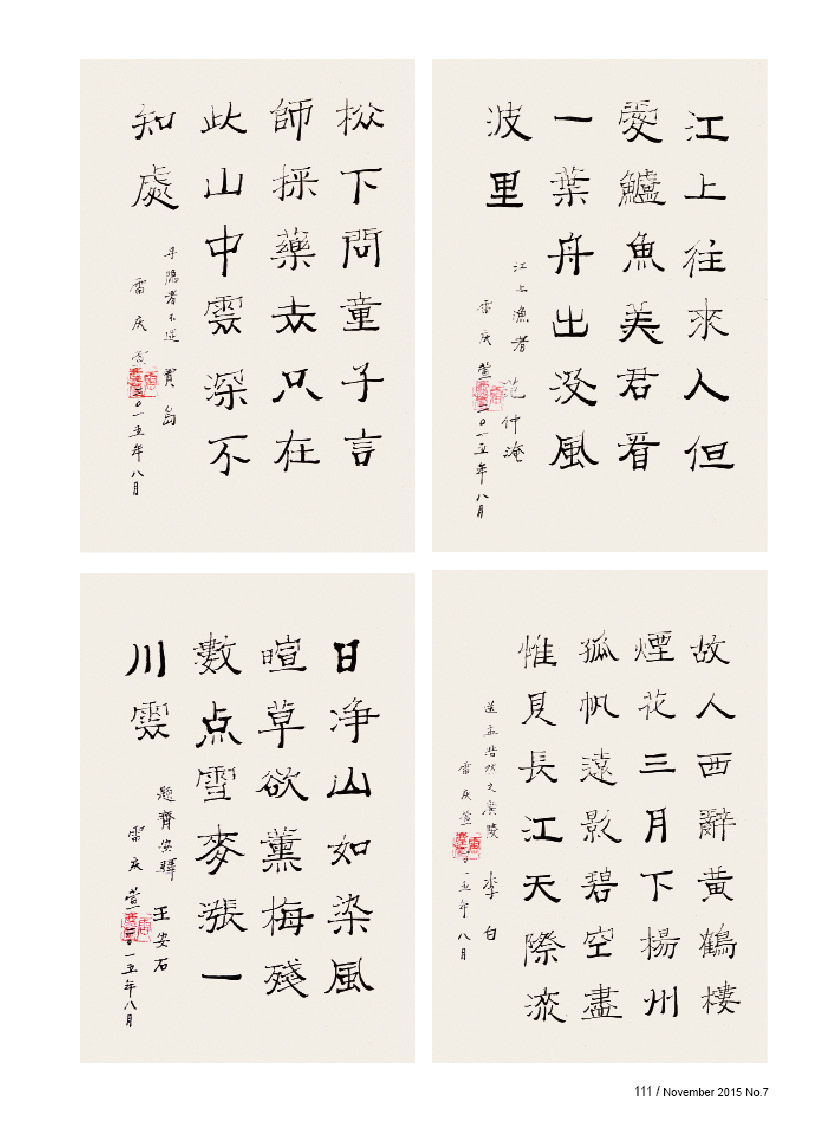 松下問童子言
師採藥去只在
此山中雲深不
知處
寻隐者不遇 賈島
雷庆萱 二0一五年八月
江上往來人但
愛鱸魚美君看
一葉舟出没風
波里
江上漁者 范仲淹
雷庆萱 二0一五年八月
日浄山如染風
暄草欲薰梅殘
數点雪麥漲一
川雲
題齊安驛 王安石
雷庆萱 二0一五年八月
故人西辭黄鶴樓
煙花三月下楊州
孤帆遠影碧空盡
惟見長江天際流
送孟浩然之廣陵 李白
雷庆萱 二0一五年八月
111 / November 2015 No.7